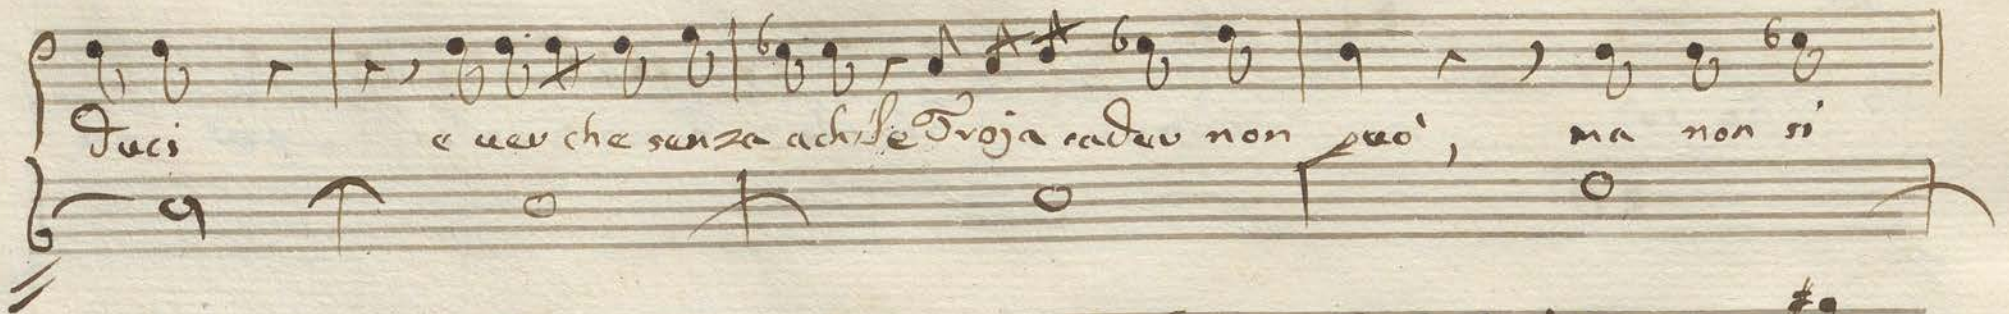 Duci e ver che senza achille Troja cader non può, ma non si